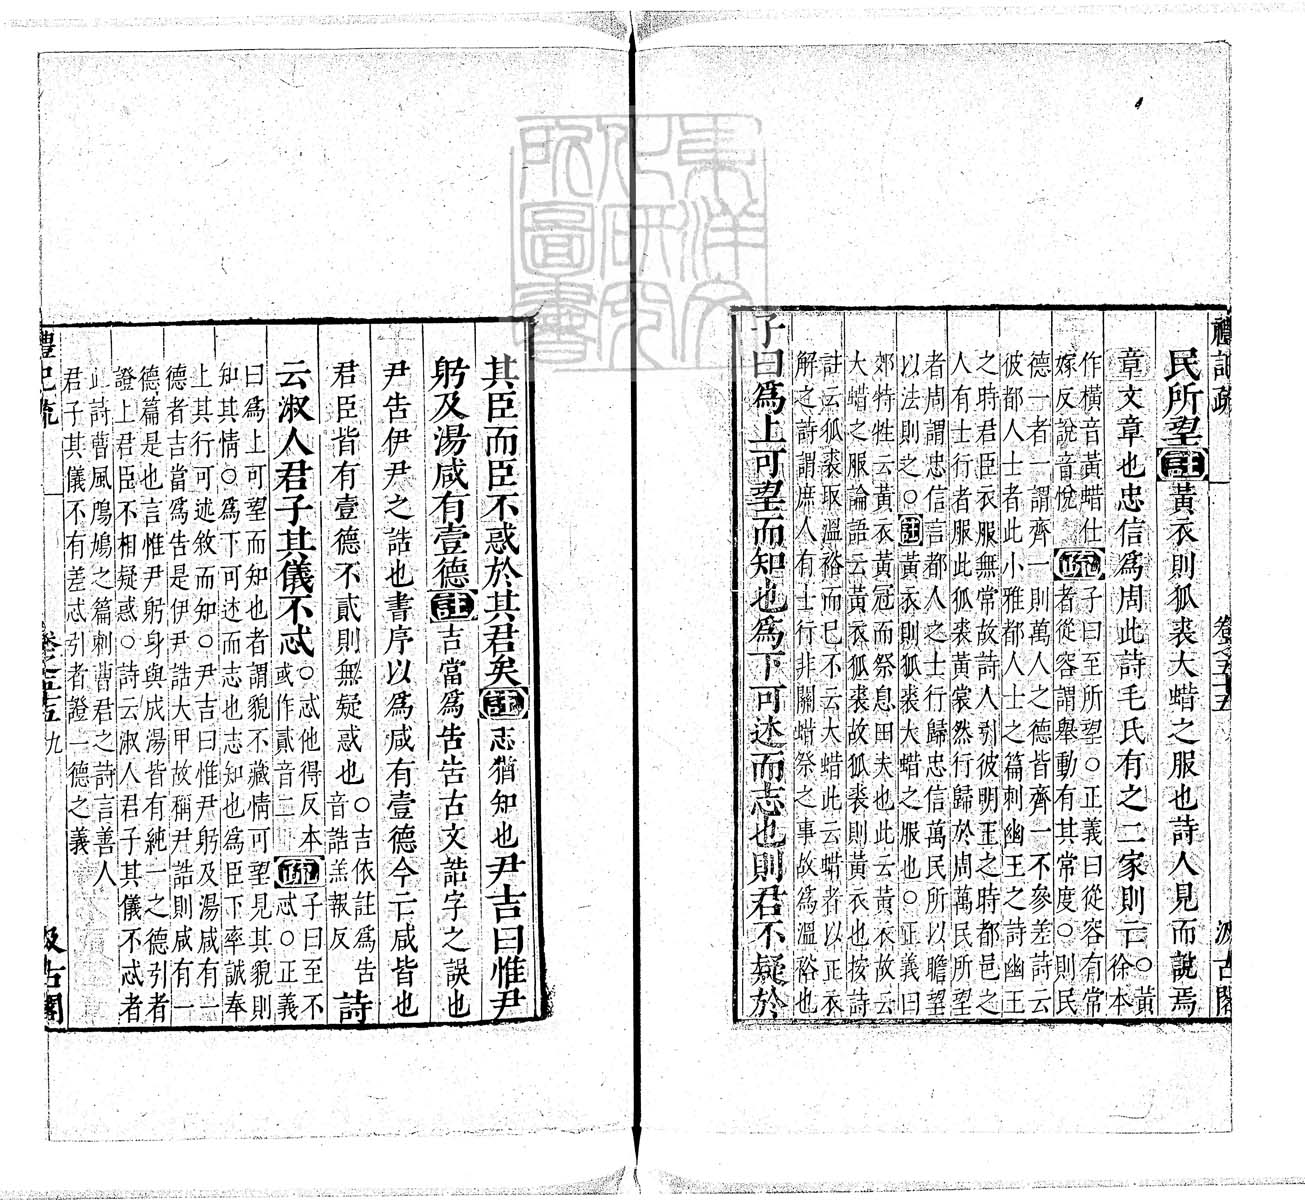 禮記疏 卷之五十五 汲古閣
民所望註黃衣則狐裘大蜡之服也詩人見而說焉
章文章也忠信爲周此詩毛氏有之三家則亡○黃徐本
作橫音黃蜡仕嫁反說音悅疏子曰至所望○正義曰從容有常者從容謂舉動有其常度○則民
德一者一謂齊一則萬人之德皆齊一不參差詩云
彼都人士者此小雅都人士之篇刺幽王之詩幽王
之時君臣衣服無常故詩人引彼明王之時都邑之
人有士行者服此狐裘黃裳然行歸於周萬民所望
者周謂忠信言都人之士行歸忠信萬民所以瞻望
以法則之○註黃衣則狐裘大蜡之服也○正義曰
郊特牲云黃衣黃冠而祭息田夫也此云黃衣故云
大蜡之服論語云黃衣狐裘故狐裘則黃衣也按詩
註云狐裘取溫裕而已不云大蜡此云蜡者以正衣
解之詩謂庶人有士行非關蜡祭之事故爲溫裕也
子曰爲上可望而知也爲下可述而志也則君不疑於
其臣而臣不惑於其君矣註志猶知也尹吉曰惟尹
躬及湯咸有壹德註吉當爲告告古文誥字之誤也
尹告伊尹之誥也書序以爲咸有壹德今亡咸皆也
君臣皆有壹德不貳則無疑惑也○吉依註爲告音誥羔報反詩
云淑人君子其儀不忒○忒他得反本或作貳音二疏子曰至不忒○正義
曰爲上可望而知也者謂貌不藏情可望見其貌則
知其情○爲下可述而志也志知也爲臣下率誠奉
上其行可述敘而知○尹吉曰惟尹躬及湯咸有一
德者吉當爲告是伊尹誥大甲故稱尹誥則咸有一
德篇是也言惟尹躬身與成湯皆有純一之德引者
證上君臣不相疑惑○詩云淑人君子其儀不忒者
此詩曹風鳲鳩之篇刺曹君之詩言善人
君子其儀不有差忒引者證一德之義
禮記疏 卷之五十五 九 汲古閣